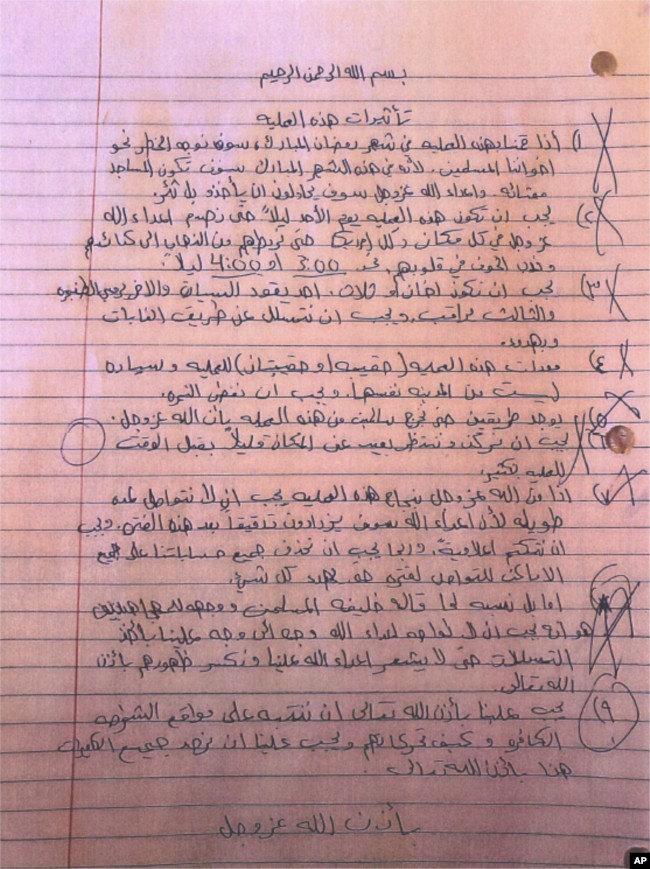 بسم الله الرحمن الرحيم
تأثيرات هذه العمليه
١) أذا قمنا بهذه العمليه في شهر رمضان المبارك، سوف نوجه الخطر نحو
اخواننا المسلمين. لأنه في هذه الشهر المبارك سوف تكون المساجد
واعداء الله عزوجل سوف يحاولون ان يأخذو بل ثئر.
٢) يجب ان تكون هذه العمليه يوم الأحد ليلاً حتى نصدم اعداء الله
عزوجل في كل مكان وكل حتى من الذهاب الى
الخوف في قلوبهم نحو 3:00 أو 4:00 ليلاً.
٣) يجب ان نكون اثنان او ثلاث. احد يقود السياره والاخر يرمي
والثالث يراقب ويجب ان نتسلل عن طريق الغابات
وبهدوء.
٤) معدات هذه العمليه (حقيبه او حقيبتان) للعمليه وسياره
ليست من المدينه نفسها. ويجب ان نغطي النمره.
٥) يوجد طريقين حتى نخرج سالمين من هذه العمليه بأذن الله عزوجل.
٦) يجب ان نركن وننتظر بعيد عن المكان قليلاً بقبل الوقت
للعمليه بكثير.
٧) اذا من الله عزوجل بنجاح هذه العمليه يجب ان لا نتواصل لمده
طويله لأن اعداء الله سوف يزدادون تدقيقاً بعد هذه الفتره. ويجب
ان وربما يجب ان نحذف جميع حساباتنا على جميع
الاماكن للتواصل لفتره حتى يهدء كل شيء.
اما بل نسبه لما قاله خليفه المسلمين ووجهه
هو انه يجب ان لا نواجه اعداء الله وجه الى وجه علينا بأخذ
التسللات حتى لا يشعر اعداء الله علينا ونكسر ظهورهم بأذن
الله تعالى.
٩) يجب علينا بأذن الله تعالى ان ننتبه على مواقع الشرطه
الكافره و كيف تحركاتهم ويجب علينا ان نرصد جميع
هذا بأذن الله تعالى.
بأذن الله عزوجل
AP